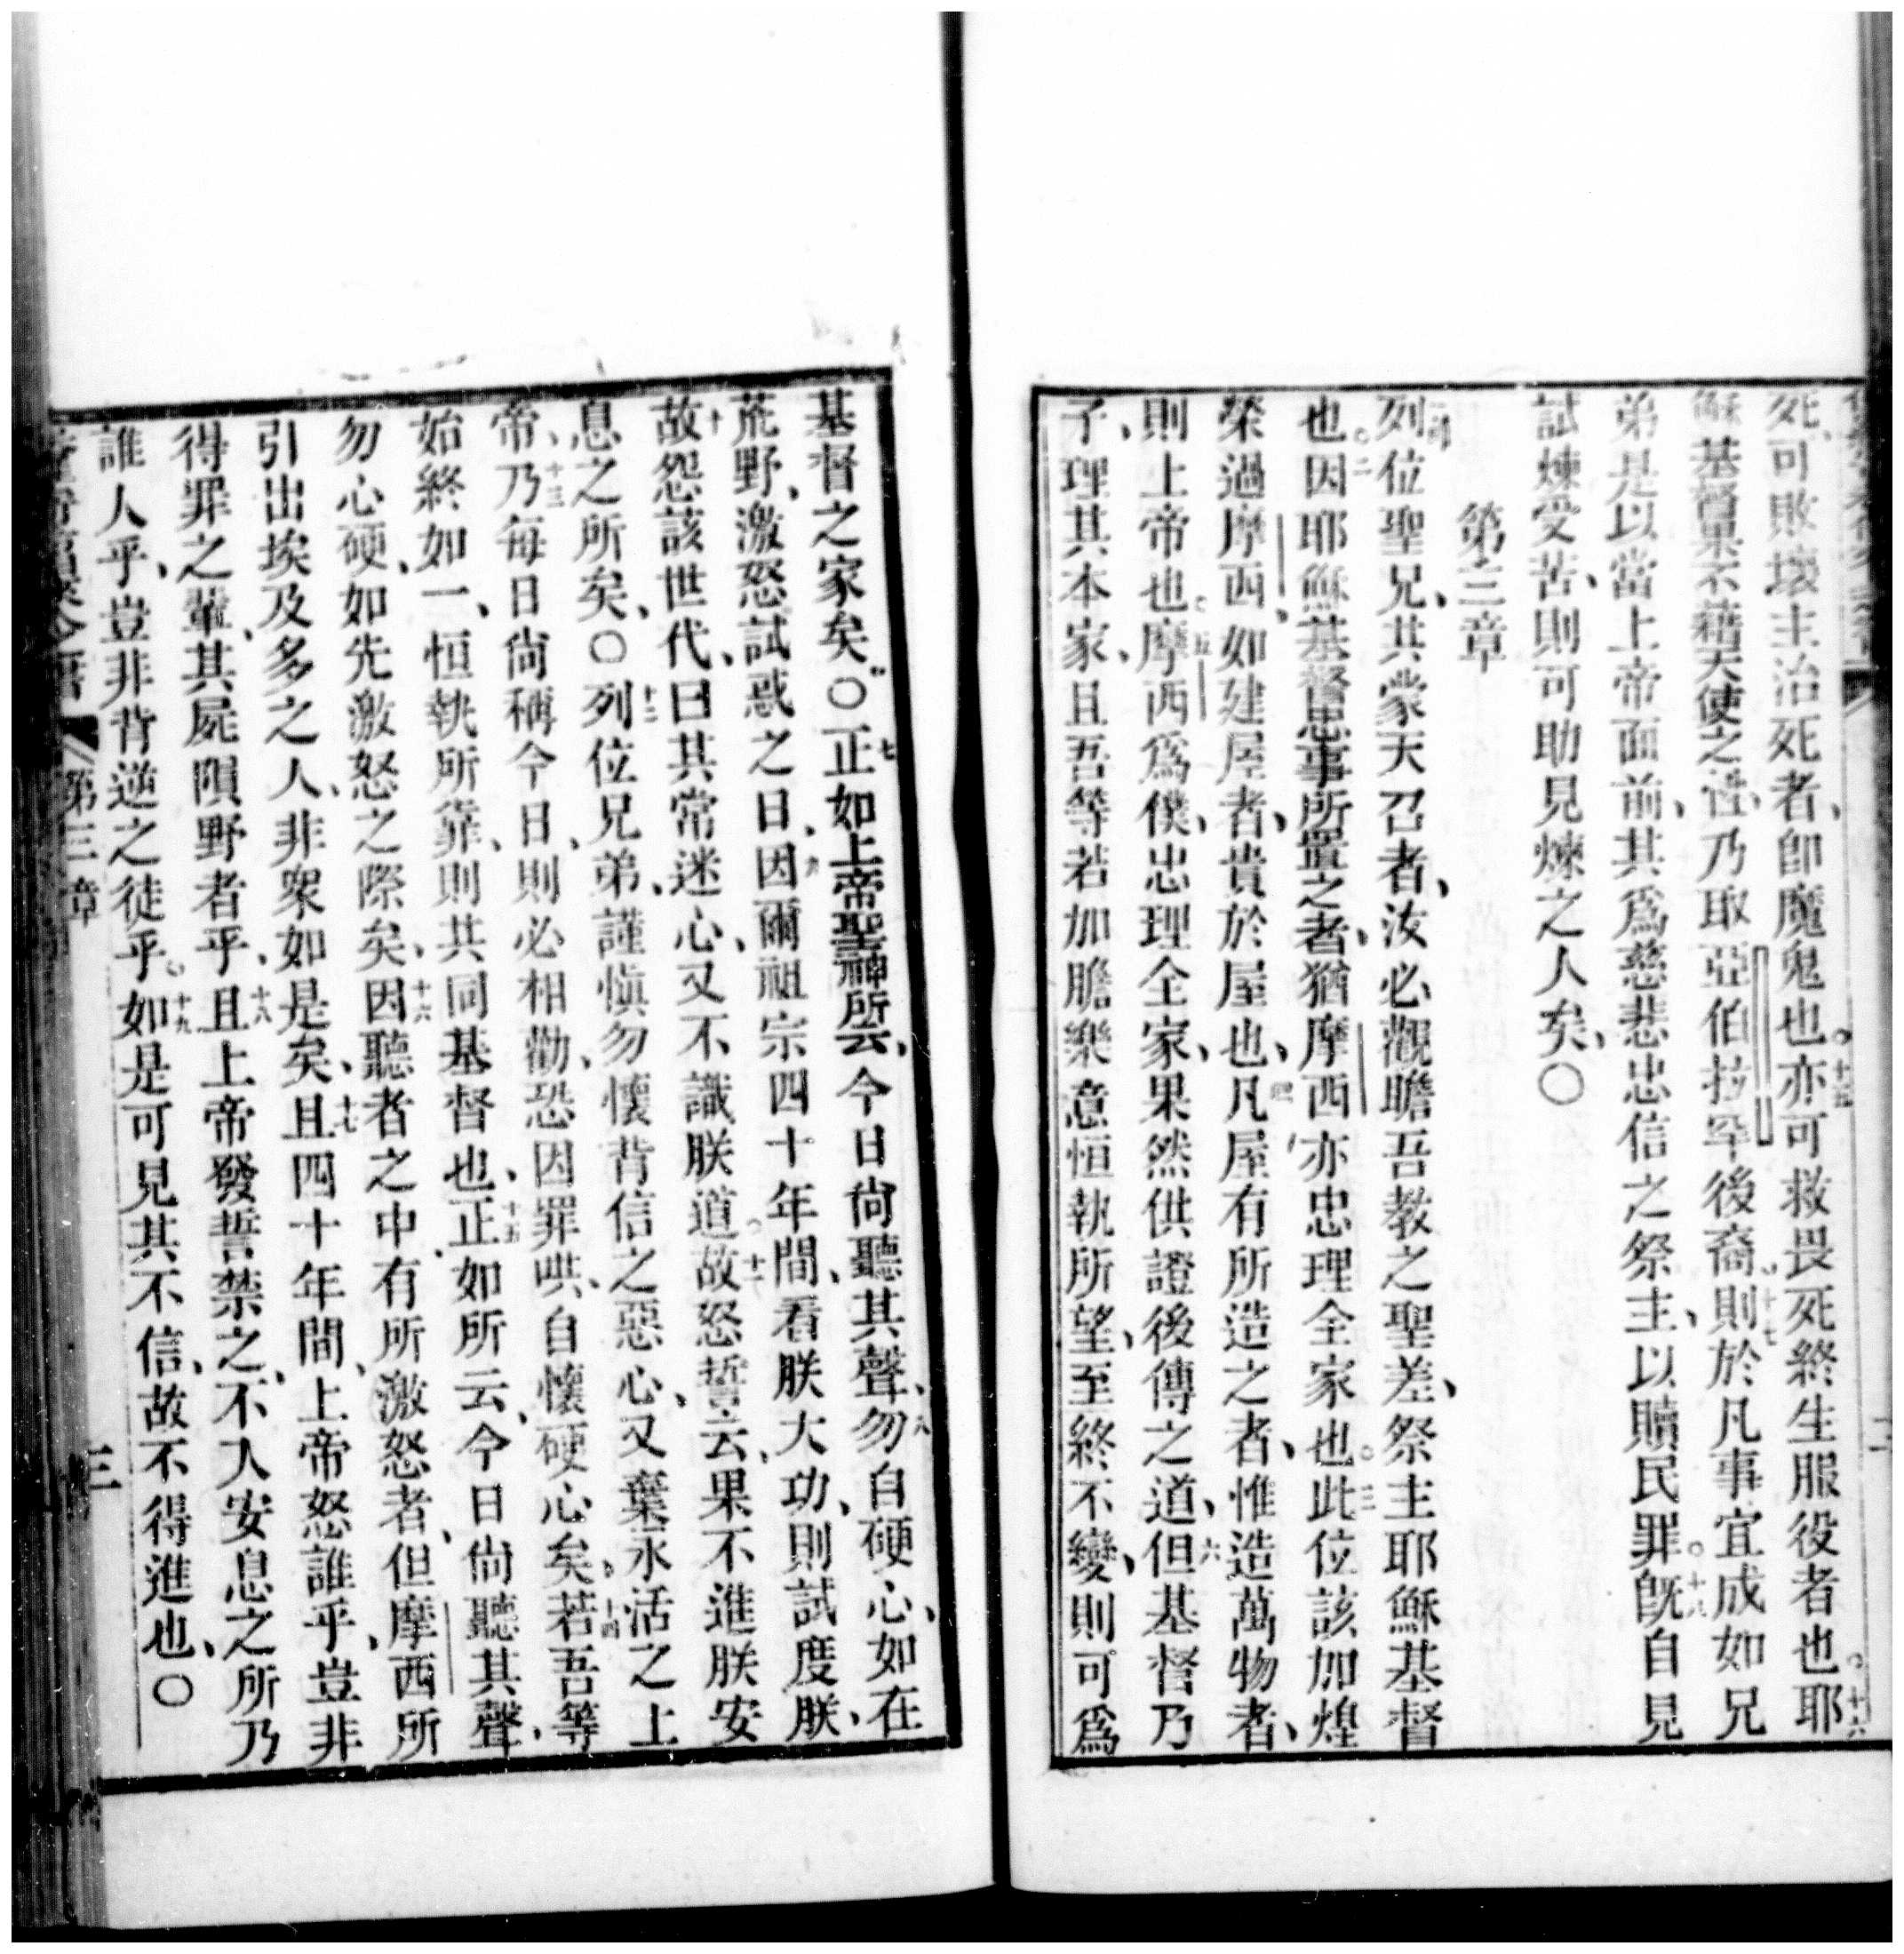 死、可敗壞主治死者、卽魔鬼也。十五亦可救畏死終生服役者也。十六耶
穌基督果不藉天使之性、乃取亞伯拉罕後裔。十七則於凡事宜成如兄
弟是以當上帝面前、其爲慈悲忠信之祭主、以贖民罪。十八旣自見
試煉受苦、則可助見煉之人矣、〇
第三章
列位聖兄、其蒙天召者、汝必觀瞻吾教之聖差、祭主耶穌基督
也。二因耶穌基督忠事所置之者、猶摩西亦忠理全家也。三此位該加煌
榮過摩西、如建屋者、貴於屋也、四凡屋有所造之者、惟造萬物者、
則上帝也。五摩西爲僕、忠理全家、果然供證後傳之道、六但基督乃
子、理其本家、且吾等若加膽樂意恒執所望、至終不變、則可爲
基督之家矣。〇七正如上帝聖神所云、今日尙聽其聲、八勿自硬心、如在
荒野、激怒試惑之日、九因爾祖宗四十年間、看朕大功、則試度朕、
十故怨該世代、曰其常迷心、又不識朕道。十一故怒誓云、果不進朕安
息之所矣、〇十二列位兄弟、謹愼勿懷背信之惡心、又棄永活之上
帝、十三乃每日尙稱今日、則必相勸、恐因罪哄、自懷硬心矣。十四若吾等
始終如一、恒執所靠、則共同基督也、十五正如所云、今日尙聽其聲、
勿心硬、如先激怒之際矣、十六因聽者之中、有所激怒者、但摩西所
引出埃及多之人、非衆如是矣、十七且四十年間、上帝怒誰乎、豈非
得罪之輩、其屍隕野者乎、十八且上帝發誓禁之、不入安息之所乃
誰人乎、豈非背逆之徒乎。十九如是可見其不信、故不得進也、〇
第三章
三